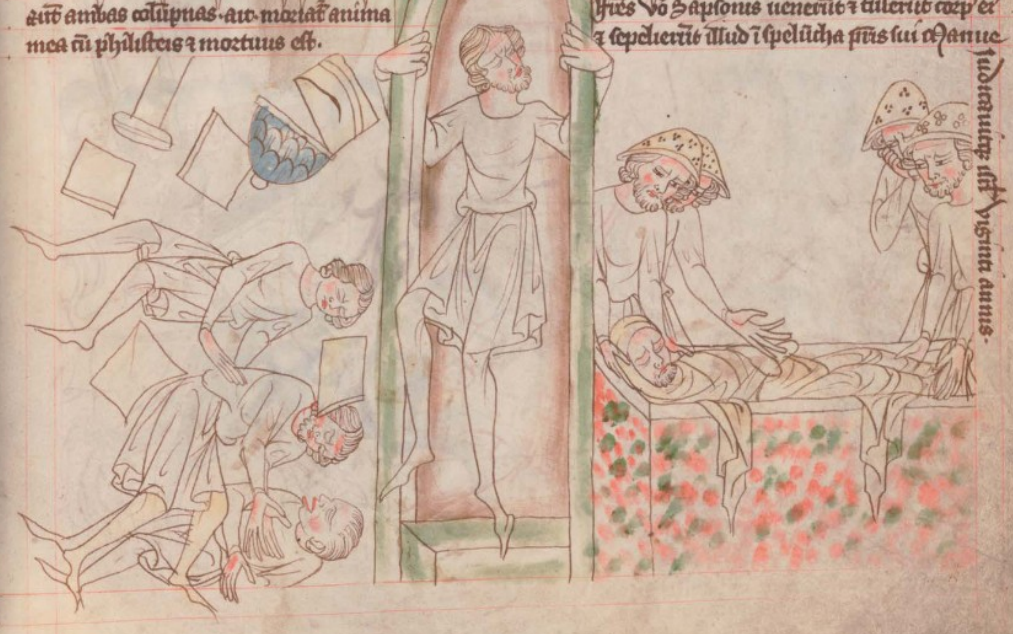 aut ambas colūpnas · aīt · moriat᷑ anima
mea cū philisteis ⁊ mortuus est ·
fr̄es vō Sāpsonis venerūt ⁊ tulerūt corp᷒ ei᷒
⁊ sepelierūt illud ī spelūcha pr̄is sui Manue
Judicauitq̄ isr̄l viginti annis ·